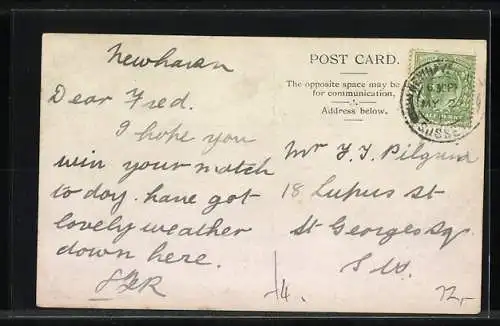 Newhaven
Dear Fred.
I hope you
win your match
to day. have got
lovely weather
down here.
POST CARD.
The opposite space may be
for communication,
Address below.
Mr F. J. Pilgrim
18 Lupus St
St Georges Sqr.
S W.
NEWHAVEN
MY 2
SUSSEX
14.
72,-